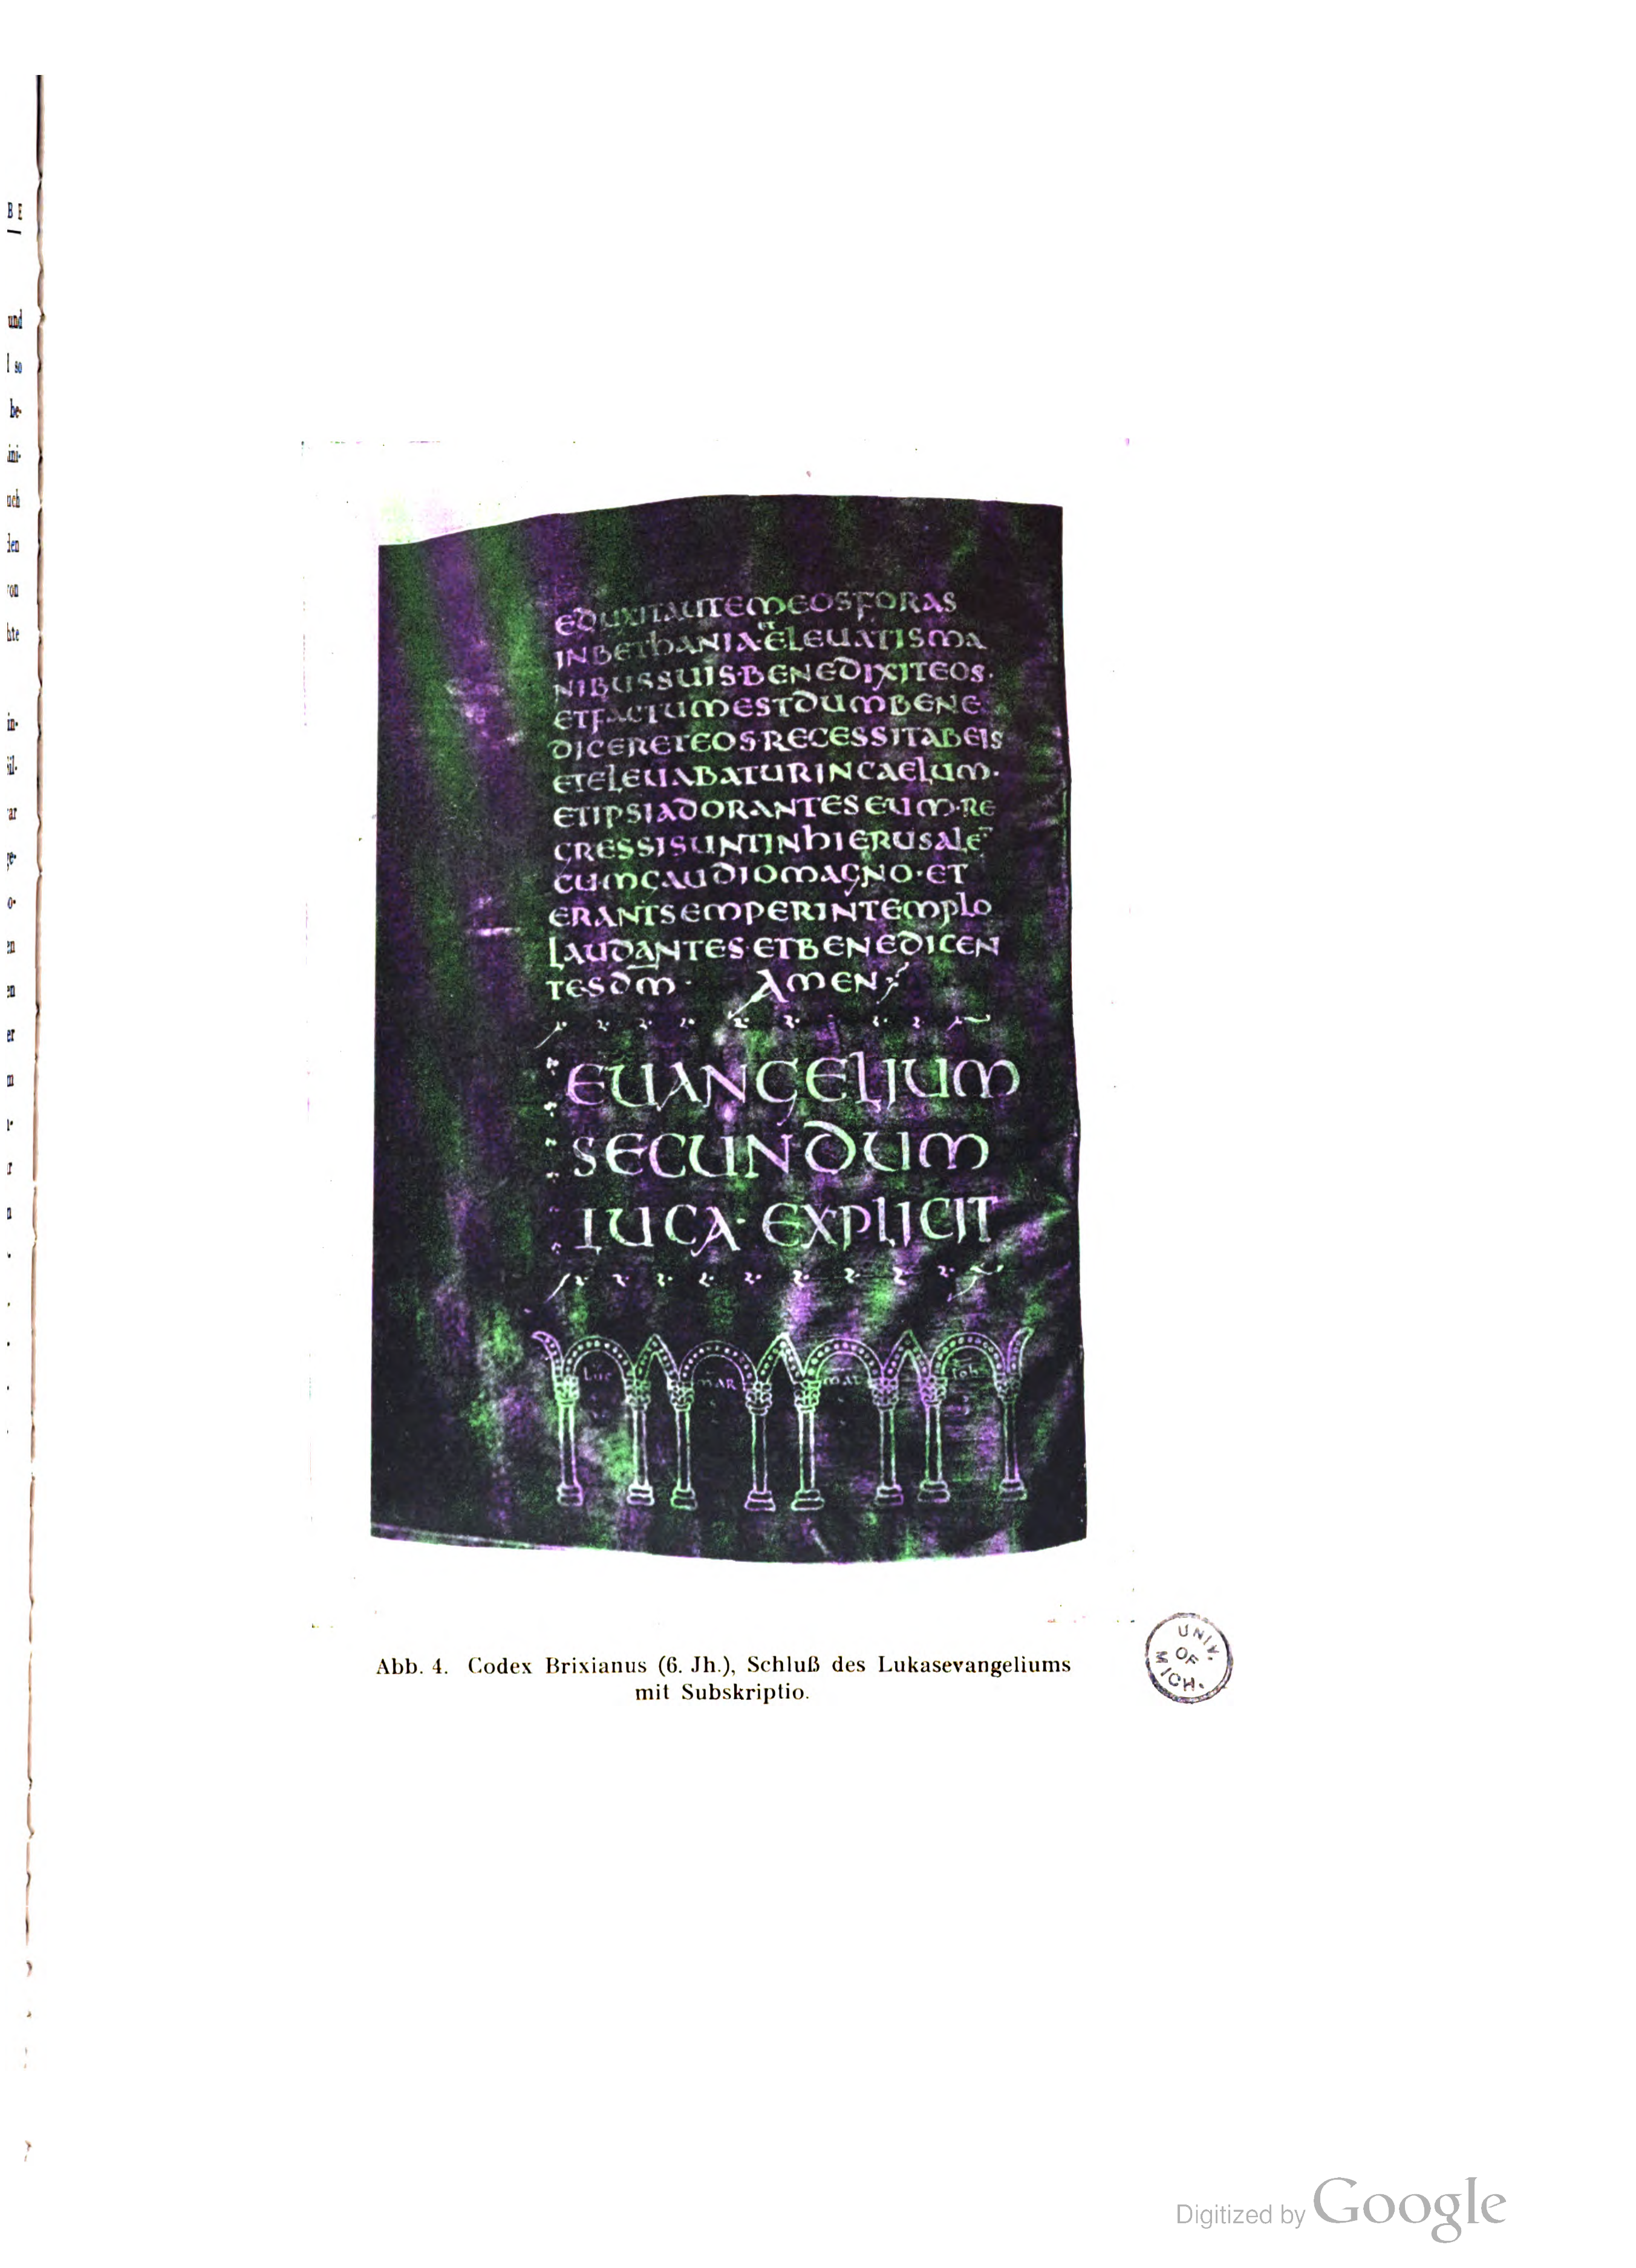 B E
und
l so
be-
ini-
uch
den
von
hte
in-
EDUXITAUTEMEOSFORAS
INBETHANIA·ET ELEUATISMA
NIBUSSUIS·BENEDIXITEOS·
ETFACTUMESTDUMBENE
DICERETEOS·RECESSITABEIS
ETELEUABATURINCAELUM·
ETIPSIADORANTESEUM·RE
GRESSISUNTINHIERUSALE
CUMGAUDIOMAGNO·ET
ERANTSEMPERINTEMPLO
LAUDANTES·ETBENEDICEN
TESDM· AMEN
EUANGELIUM
SECUNDUM
LUCA· EXPLICIT
LUC MAR MAT IOH
Abb. 4. Codex Brixianus (6. Jh.), Schluß des Lukasevangeliums
mit Subskriptio.
UNIV.
OF
MICH.
Digitized by Google